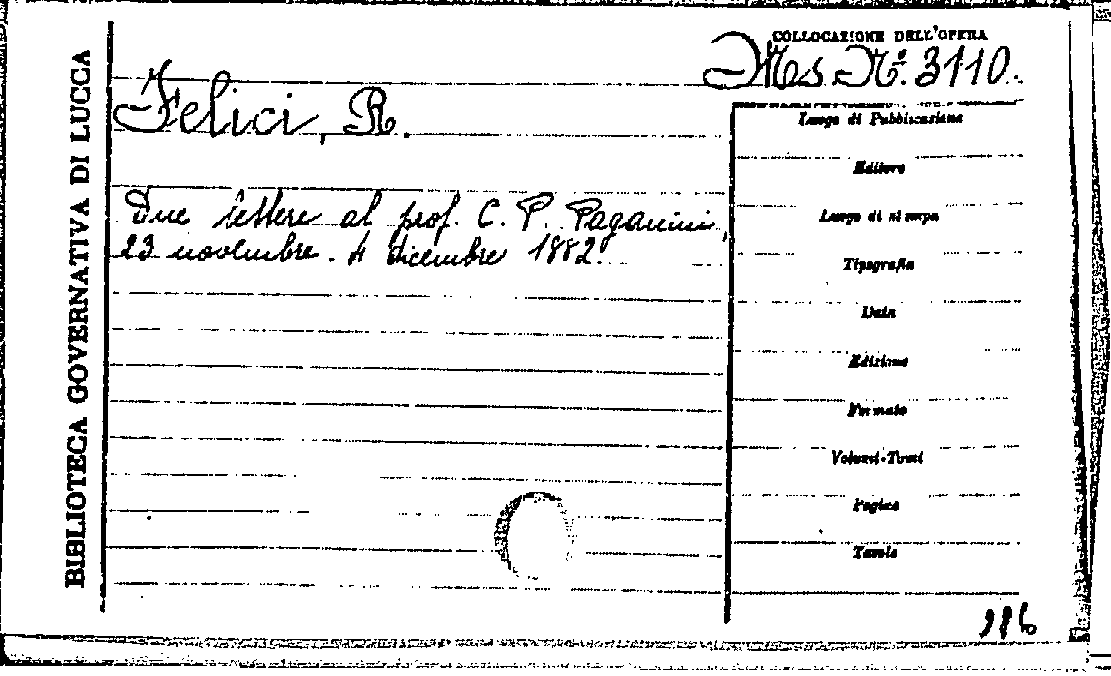 BIBLIOTECA GOVERNATIVA DI LUCCA
COLLOCAZIONE DELL'OPERA
Ms. Nº. 3110.
Felici, R.
Due lettere al prof. C. P. Paganini,
23 novembre. 4 dicembre 1882.
Luogo di Pubblicazione
Editore
Luogo di stampa
Tipografia
Data
Edizione
Formato
Volumi-Tomi
Pagine
Tavole